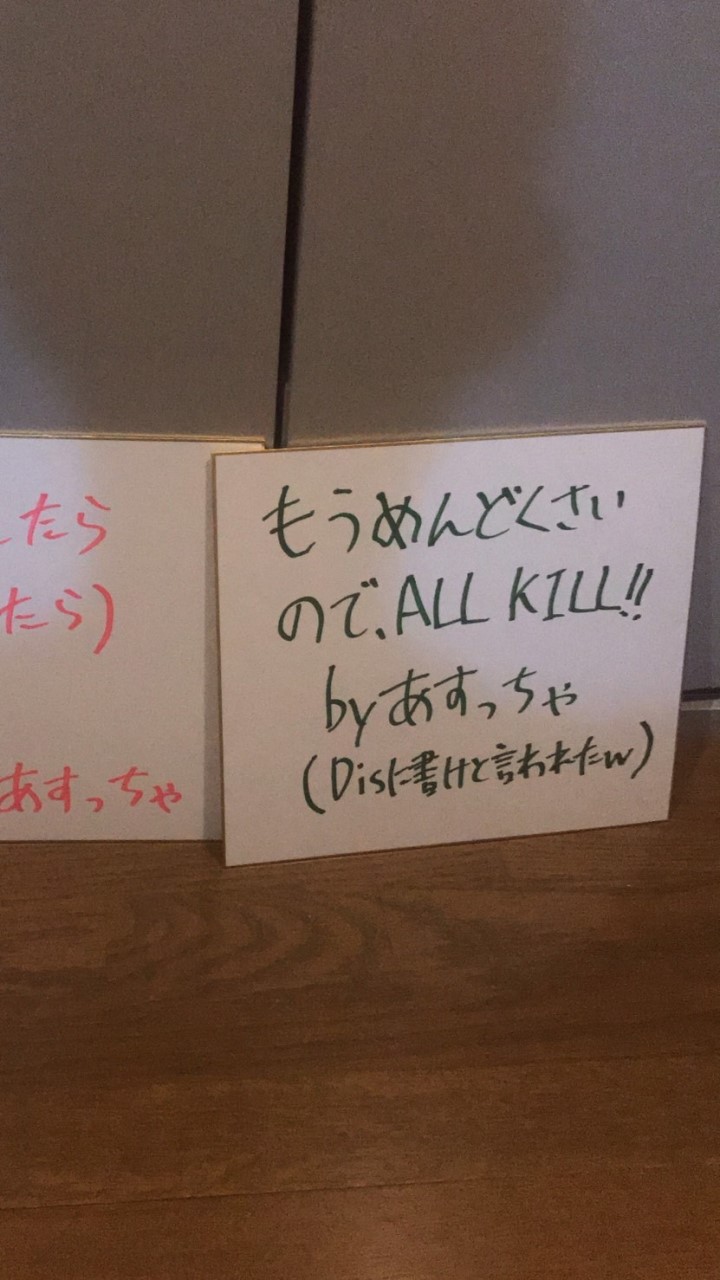 したら
たら)
あすっちゃ
もうめんどくさい
ので、ALL KILL!!
byあすっちゃ
(Disに書けと言われたw)